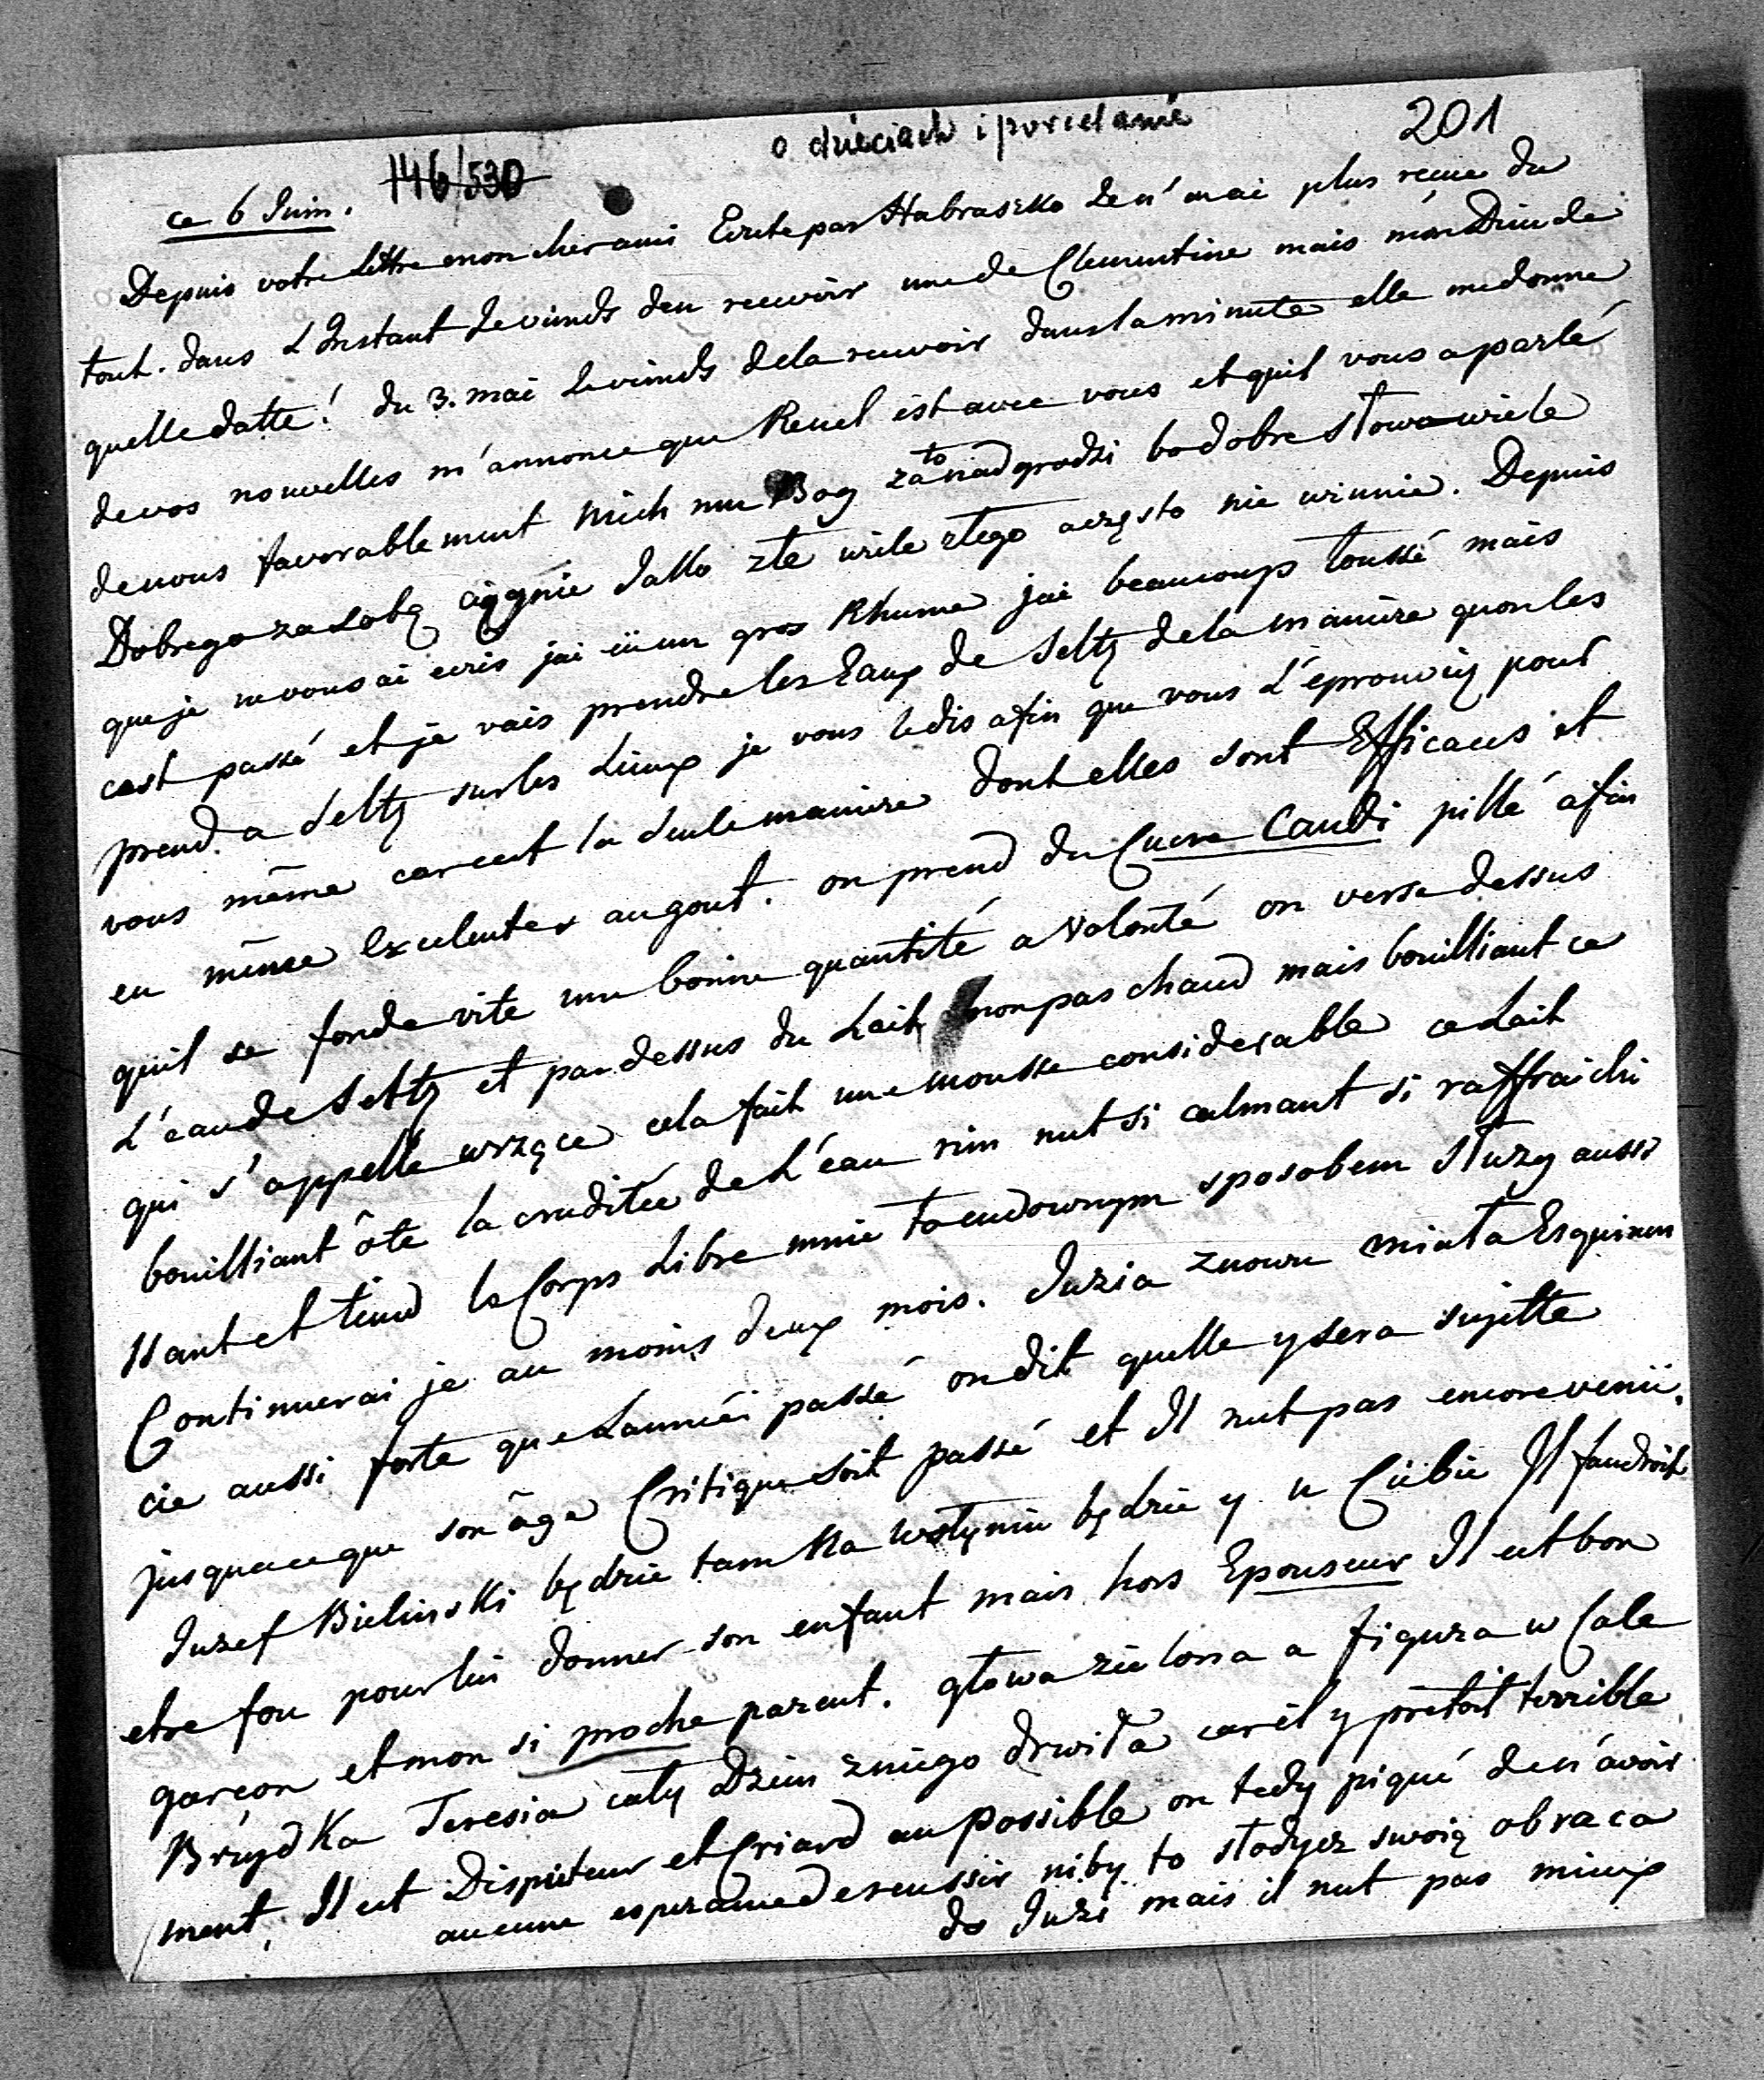 o dzieciach i porcelanie
201
146/530
ce 6 Juin.
Depuis votre Lettre mon cher ami Ecrite par Habraszko Je n'en ai plus recue du
tout. dans L'Instant Je viends d'en recevoir une de Clementine mais mon Dieu de
quelle datte! du 3. mai Je viends de la recevoir dans la minute elle me donne
de vos nouvelles m'annonce que Kenel est avec vous et quil vous a parlé
de nous favorablement niech mu Bog za to nadgrodzi bo dobre słowo wiele
Dobrego za sobą ciągnie Jako złe wiele złego a często nie winnie. Depuis
que je ne vous ai ecris jai ëü un gros Rhume jai beaucoup toussé mais
cest passé et je vais prendre les Eaux de Seltz de la maniere quon les
prend a Seltz sur les Lieux je vous le dis afin que vous L'éprouviez pour
vous même car cest la seule maniere dont elles sont Efficaces et
en même Excelentes au gout. on prend du Cucre Candi pillé afin
quil se fonde vite une bonne quantité a volonté on verse dessus
L'eau de Seltz et par dessus du Lait non pas chaud mais bouilliant ce
qui s'appelle wrzące cela fait une mousse considerable ce Lait
bouilliant ôte la cruditée de L'eau rien nest si calmant si raffraichi
ssant et tiend le Corps Libre mnie to cudownym sposobem służy aussi
Continuerai je au moins deux mois. Juzia znowu miała Esquinen
cie aussi forte que Lannéé passé on dit quelle y sera sujette
jusqua ce que son âge Critique soit passé et Il nest pas encore venü.
Juzef Bielinski będzie tam na Wołyniu będzie y u Ciebie Il faudroit
etre fou pour lui donner son enfant mais hors Epouseur Il est bon
garçon et mon si proche parent. głowa zielona a figura w Cale
Brzydka Teresia cały Dzien z niego drwiła car il y prétoit terrible
ment, Il est Disputeur et Criard au possible on tedy piqué de n'avoir
aucune esperance de reussir niby to słodycz swoią obraca
do Juzi mais il nest pas mieux